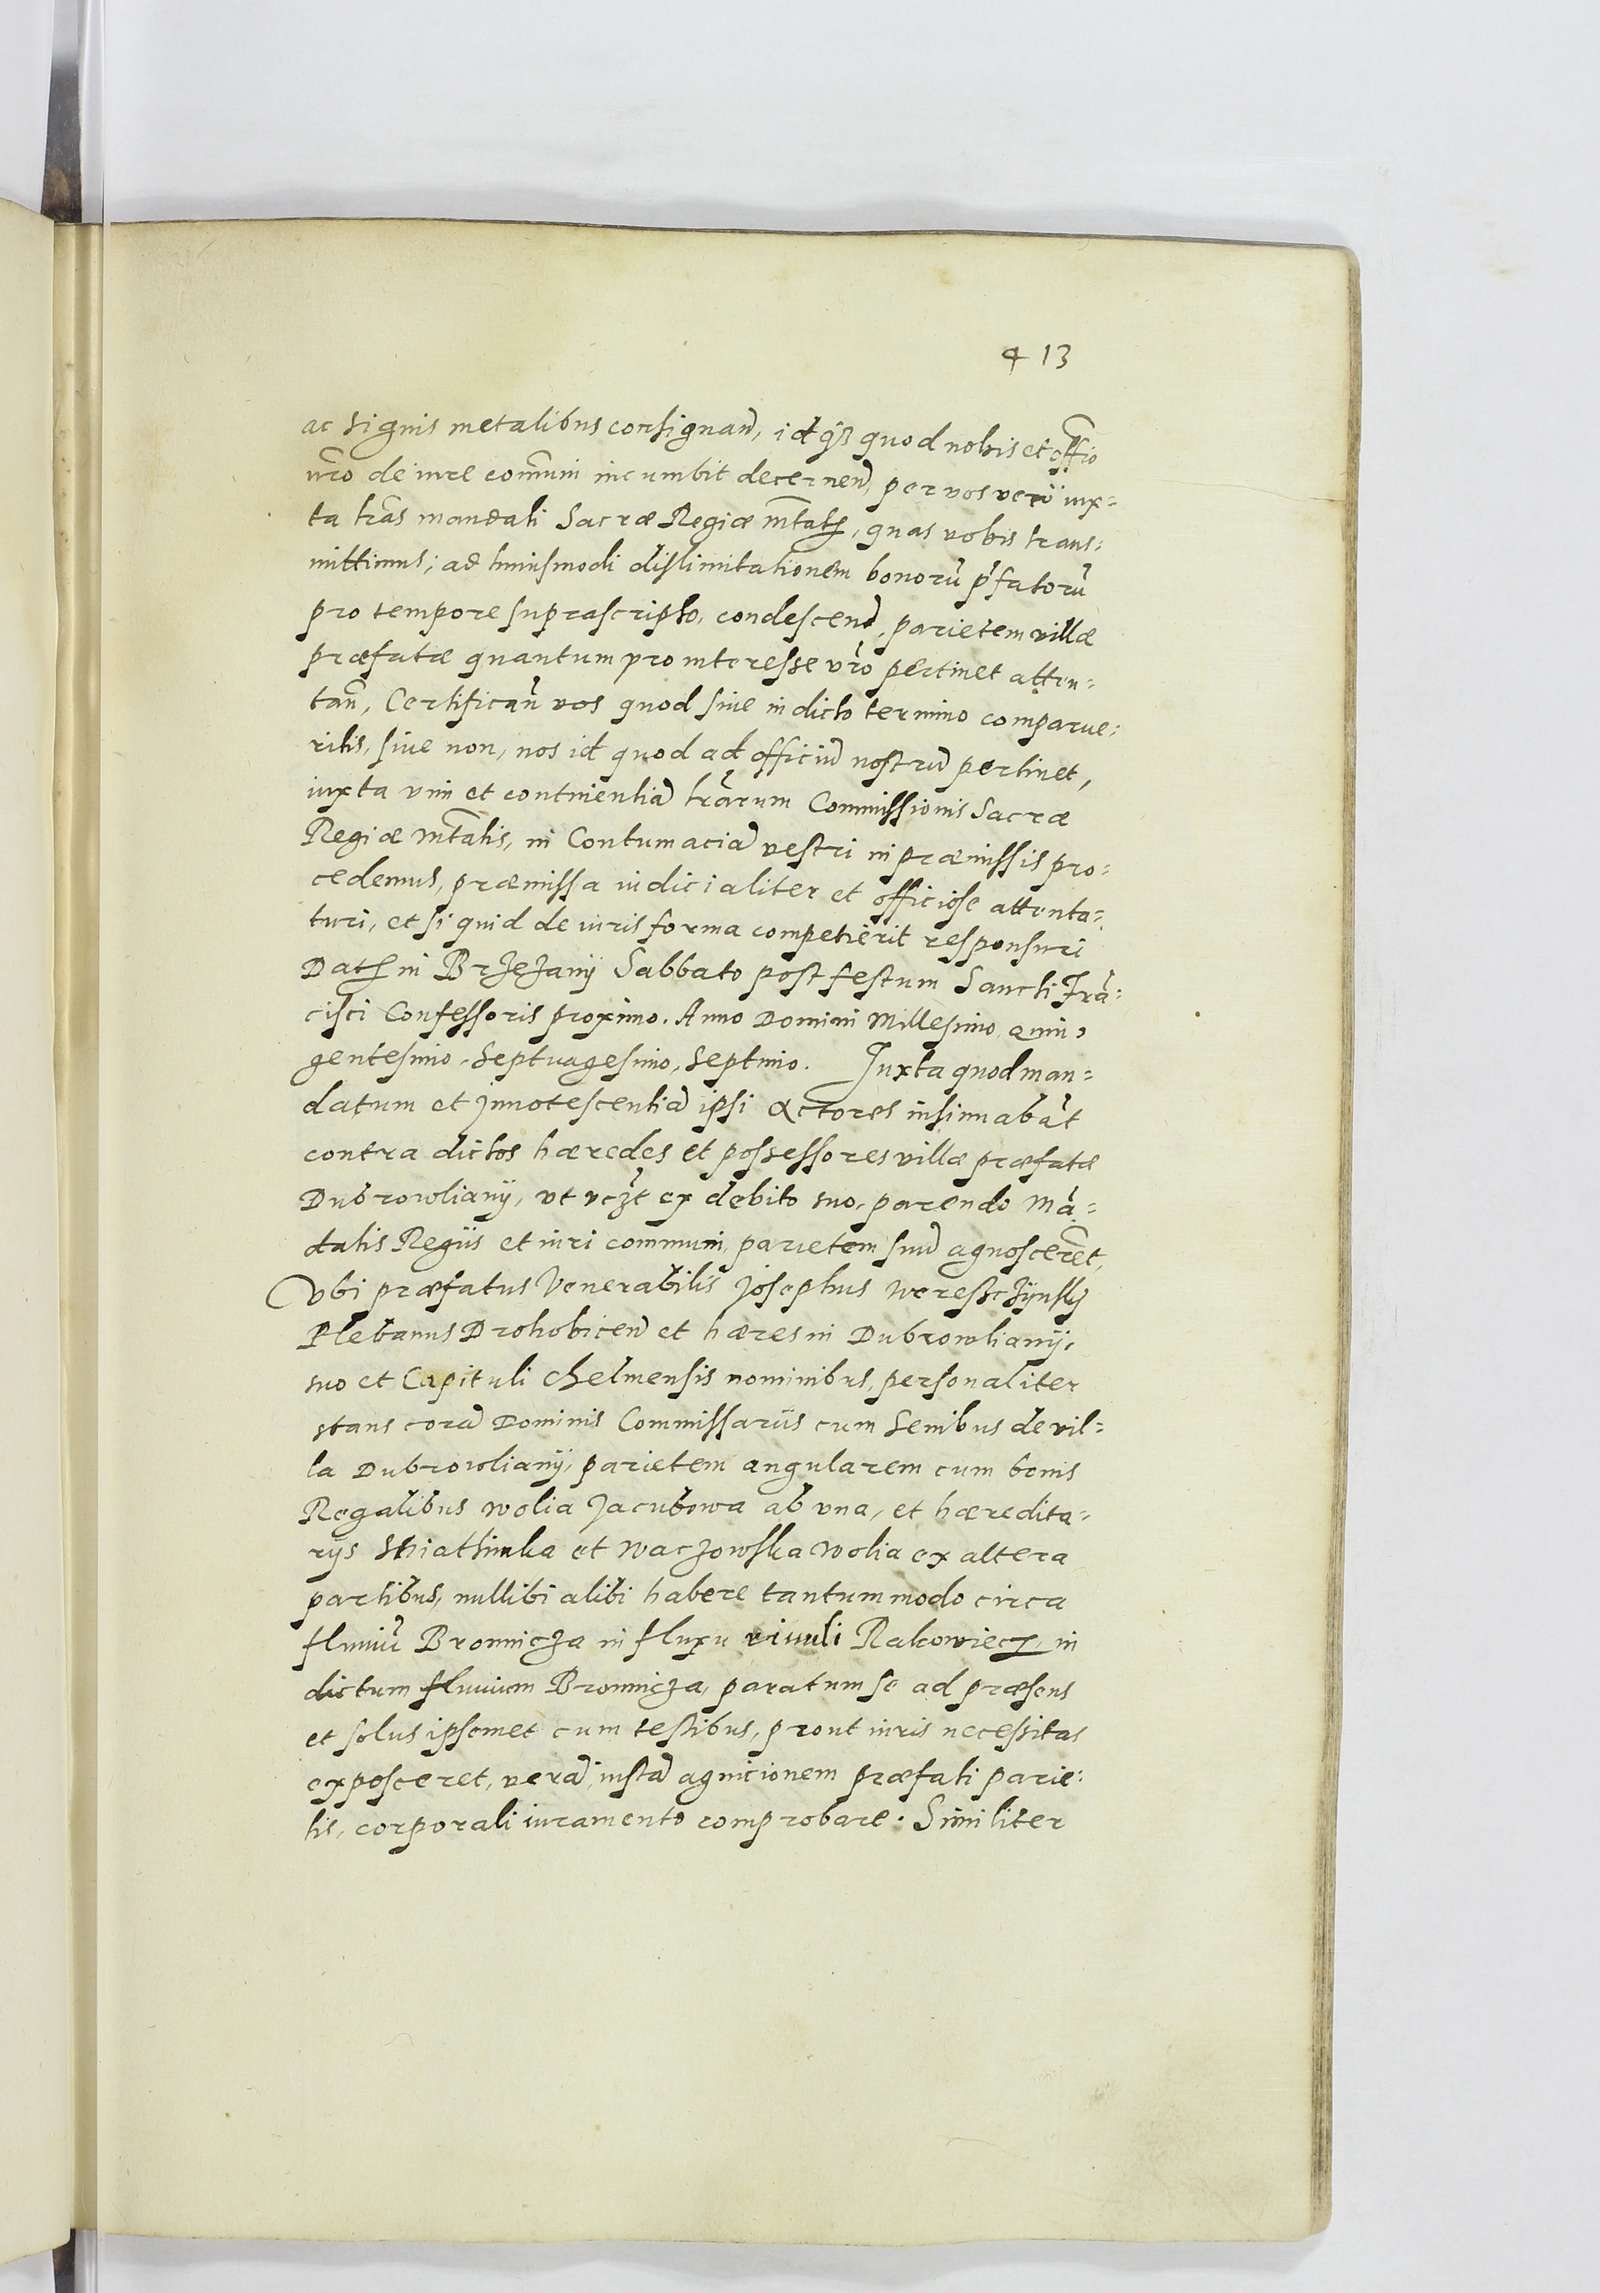 413
ac signis metalibus consignan̄, id qȝ quod nobis et offio
nr̄o de iure com̄uni incumbit decernen̄, per vos verō iux=
ta lr̄as mandati Sacræ Regiæ Mt̄atis, quas vobis trans:
mittimus; ad huiusmodi dislimitationem bonorū p̄fatorū
pro tempore suprascripto, condescend̄, parietem villæ
præfatæ quantum pro interesse vr̄o pertinet atten=
tan̄, Certifican̄ vos quod siue in dicto termino comparue:
ritis, siue non, nos id quod ad officiū nostrū pertinet,
iuxta vim et continentiā lr̄arum Commissionis Sacræ
Regiæ Mt̄atis, in Contumaciā vestri in præmissis pro:
cedemus, præmissa iudicialiter et officiose attenta=
turi, et si quid de iuris forma competierit responsuri
Datis in Brzezany Sabbato post festum Sancti Frā=
cisci Confessoris proximo. Anno Domini Millesimo, quin=
gentesimo. Septuagesimo, Septimo. Juxta quod man=
datum et Jnnotescentiā ipsi Actores insinuabāt
contra dictos hæredes et possessores villæ præfatæ
Dubrowliany, vt vcz̄t ex debito suo, parendo Mā=
datis Regiis et iuri communi, parietem suū agnoscerēt,
Vbi præfatus Venerabilis Josephus Wereszczynsky
Plebanus Drohobicen̄ et hæres in Dubrowliany,
suo et Capituli Chelmensis nominibus, personaliter
stans corā Dominis Commissariis cum Senibus de vil=
la Dubrowliany, parietem angularem cum bonis
Regalibus Wolia Jacubowa ab vna, et hæredita=
rijs Stiathinka et Waczowska Wolia ex altera
partibus, nullibi alibi habere tantummodo circa
fluuiū Bronnicza in fluxu riuuli Rakowiecz, in
dictum fluuium Bronnicza, paratum se ad præsens
et solus ipsemet cum testibus, prout iuris necessitas
exposceret, verā, iustā agnicionem præfati parie:
tis, corporali iuramento comprobare. Similiter